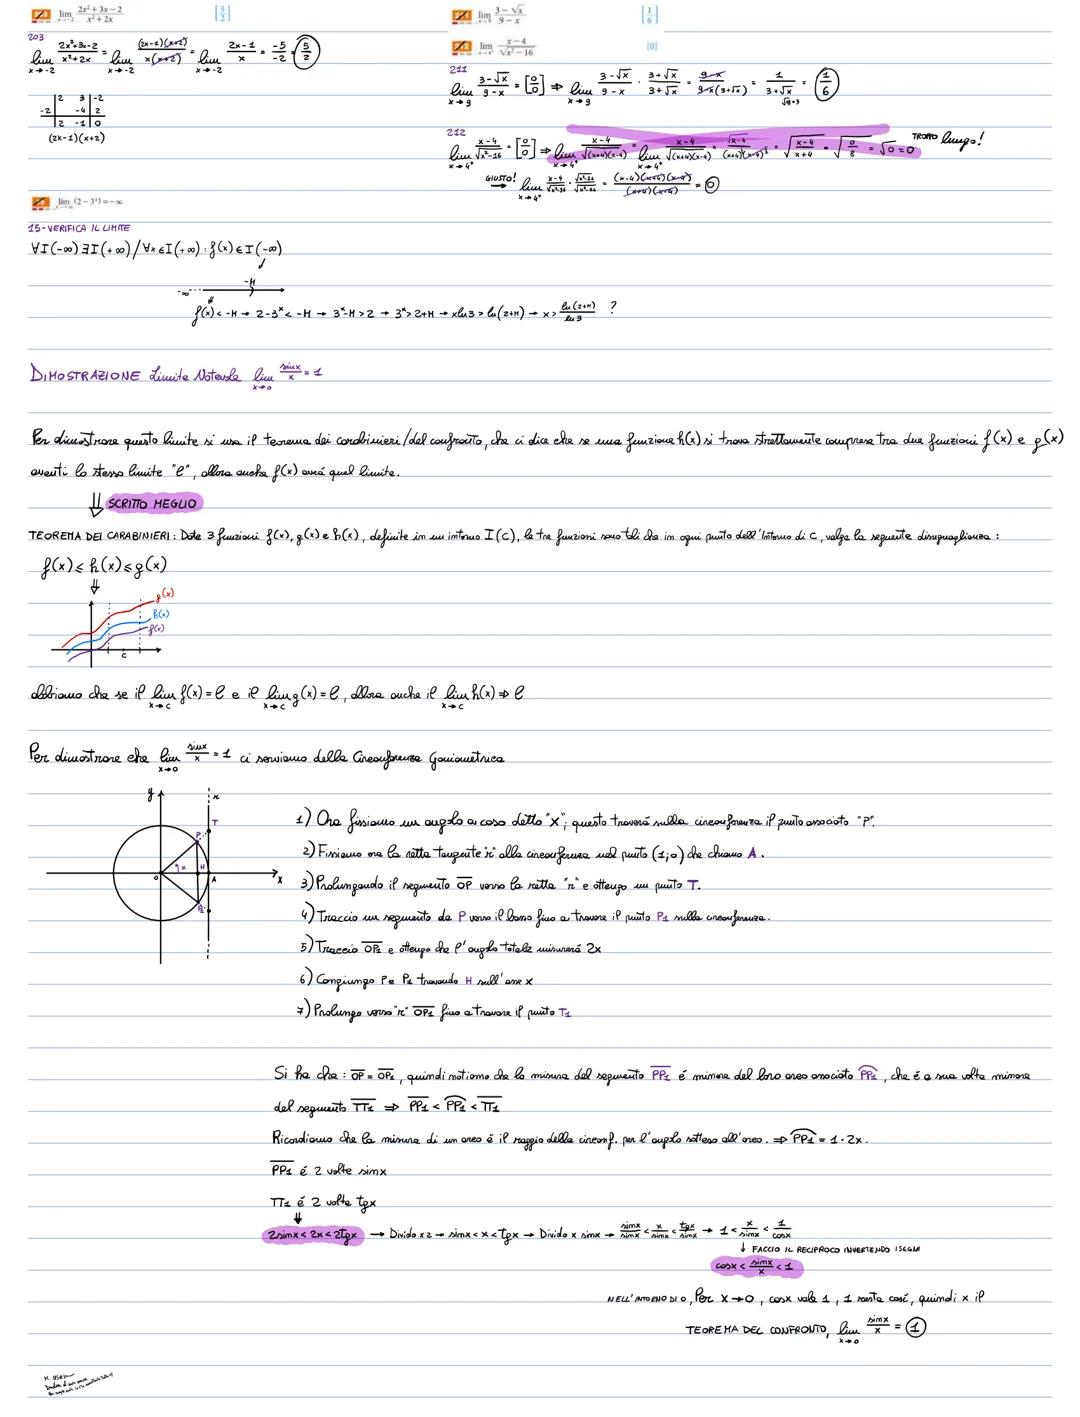 lim x→-2 (2x² + 3x − 2)/(x² + 2x) [5/2]
203
lim x→-2 (2x²+3x-2)/(x²+2x) = lim x→-2 (2x-1)(x+2)/x(x+2) = lim x→-2 (2x-1)/x = -5/-2 = 5/2
2 3 -2
-2 -4 2
2 -1 0
(2x-1)(x+2)
lim x→9 (3 − √x)/(9 − x) [1/6]
lim x→4⁺ (x − 4)/√(x² − 16) [0]
211
lim x→9 (3-√x)/(9-x) = [0/0] ⇒ lim x→9 (3-√x)/(9-x) · (3+√x)/(3+√x) = (9-x)/(9-x)(3+√x) = 1/(3+√x) = 1/6
√9=3
212
lim x→4⁺ (x-4)/√(x²-16) = [0/0] ⇒ lim x→4⁺ (x-4)/√((x+4)(x-4)) = lim x→4⁺ (x-4)/√((x+4)(x-4)) = √((x-4)/(x+4)) = √(0/8) = √0 = 0 TROPPO lungo!
GIUSTO! → lim x→4⁺ (x-4)/√(x²-16) · √(x²-16)/√(x²-16) = (x-4)(x+4)(x-4)/(x+4)(x-4) = 0
lim (2 − 3ˣ) = −∞
15-VERIFICA IL LIMITE
∀I(-∞) ∃I(+∞) / ∀x ∈ I(+∞) : f(x) ∈ I(-∞)
-∞ -M
f(x) < -M → 2-3ˣ < -M → 3ˣ-M > 2 → 3ˣ > 2+M → xln3 > ln(2+M) → x > ln(2+M)/ln3 ?
DIMOSTRAZIONE Limite Notevole lim x→0 sinx/x = 1
Per dimostrare questo limite si usa il teorema dei carabinieri/del confronto, che ci dice che se una funzione h(x) si trova strettamente compresa tra due funzioni f(x) e g(x)
aventi lo stesso limite "l", allora anche f(x) avrá quel limite.
⇓ SCRITTO MEGLIO
TEOREMA DEI CARABINIERI: Date 3 funzioni f(x), g(x) e h(x), definite in un intorno I(C), le tre funzioni sono tali che in ogni punto dell'intorno di C, valga la seguente disuguaglianza:
f(x) ≤ h(x) ≤ g(x)
g(x)
h(x)
f(x)
C
abbiamo che se il lim x→C f(x) = l e il lim x→C g(x) = l, allora anche il lim x→C h(x) ⇒ l
Per dimostrare che lim x→0 sinx/x = 1 ci serviamo della Circonferenza Goniometrica
y r T P x H O A x P₁
1) Ora fissiamo un angolo a caso detto "x"; questo troverá sulla circonferenza il punto associato "P".
2) Fissiamo ora la retta tangente "r" alla circonferenza nel punto (1;0) che chiamo A.
3) Prolungando il segmento OP verso la retta "r" e ottengo un punto T.
4) Traccio un segmento da P verso il basso fino a trovare il punto P₁ sulla circonferenza.
5) Traccio OP₁ e ottengo che l'angolo totale misurerá 2x
6) Congiungo P e P₁ trovando H sull'asse x
7) Prolungo verso "r" OP₁ fino a trovare il punto T₁
Si ha che: OP = OP₁, quindi notiamo che la misura del segmento PP₁ é minore del loro arco associato PP₁, che é a sua volta minore
del segmento TT₁ ⇒ PP₁ < PP₁ < TT₁
Ricordiamo che la misura di un arco é il raggio della circonf. per l'angolo sotteso all'arco. ⇒ PP₁ = 1·2x.
PP₁ é 2 volte sinx
TT₁ é 2 volte tgx
2sinx < 2x < 2tgx → Divido x 2 → sinx < x < tgx → Divido x sinx → sinx/sinx < x/sinx < tgx/sinx → 1 < x/sinx < 1/cosx
↓ FACCIO IL RECIPROCO INVERTENDO I SEGNI
cosx < sinx/x < 1
NELL'INTORNO DI 0, Per x→0, cosx vale 1, 1 resta cosí, quindi x il
TEOREMA DEL CONFRONTO, lim x→0 sinx/x = 1